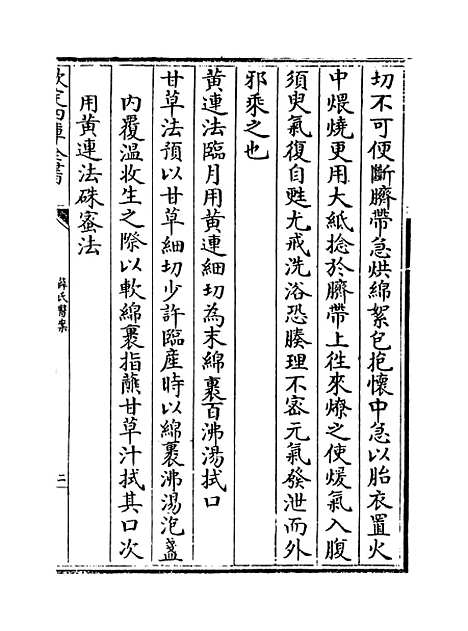 切不可便斷臍帶急烘綿絮包抱懷中急以胎衣置火
中煨燒更用大紙捻於臍帶上徃來燎之使煖氣入腹
須臾氣復自甦尤戒洗浴恐腠理不密元氣發泄而外
邪乘之也
黄連法臨月用黄連細切為末綿裹百沸湯拭口
甘草法預以甘草細切少許臨産時以綿裹沸湯泡盞
内覆温收生之際以軟綿裹指蘸甘草汁拭其口次
用黄連法硃蜜法
欽定四庫全書
薛氏醫案
二